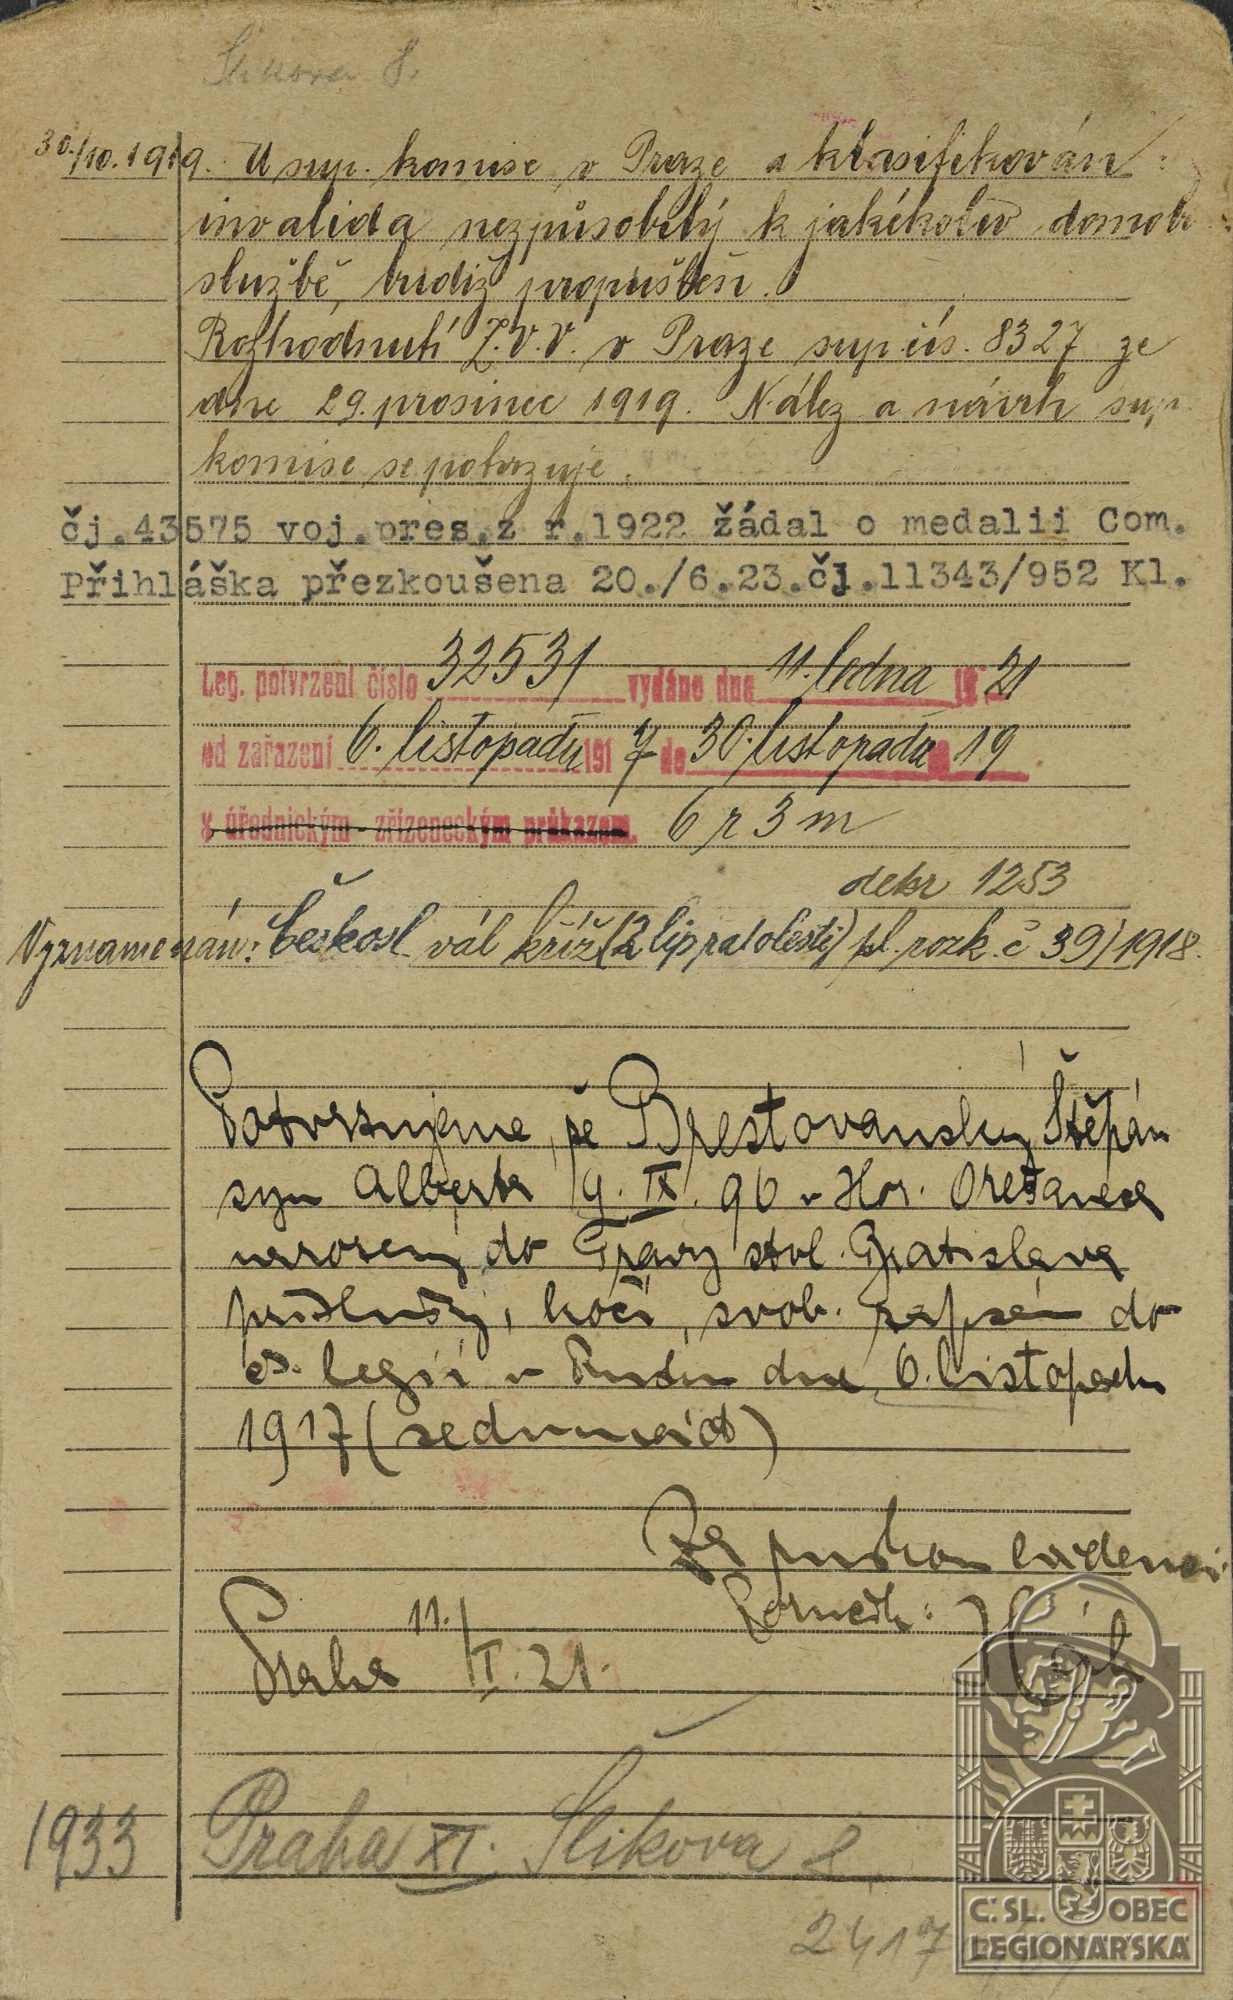 30./10.1919. U sup. komise v Praze a klasifikován:
invalida nezpůsobilý k jakékoliv domob.
službě, budiž propuštěn.
Rozhodnutí Z.V.V. v Praze sup. čís. 8327 ze
dne 29. prosince 1919. Nález a návrh sup.
komise se potvrzuje.
čj.43575 voj.pres.z r.1922 žádal o medalii Com.
Přihláška přezkoušena 20./6.23.čj.11343/952 Kl.
Leg. potvrzení číslo 32531 vydáno dne 11. ledna 1921
od zařazení 6. listopadu 1917 do 30. listopadu 19
s úřednickým - zřízeneckým průkazem. 6 r 3 m
dekr 1253
Vyznamenán: Českosl. vál kříž (2 lip ratolesti) pl. rozk. č 39/1918.
Potvrzujeme, že Brestovanský Štěpán
syn Alberta 9. IX. 96 v Hor. Orešanech
narozený do Pravy stol. Bratislava
příslušný, hoči, svob. zapsán do
čs. legií v Rusku dne 6. listopadu
1917 (sedmnáct)
Za evidenci
Praha 11./I. 21.
1933 Praha XI. Šlikova 8.
2417
Č.SL. OBEC
LEGIONÁŘSKÁ